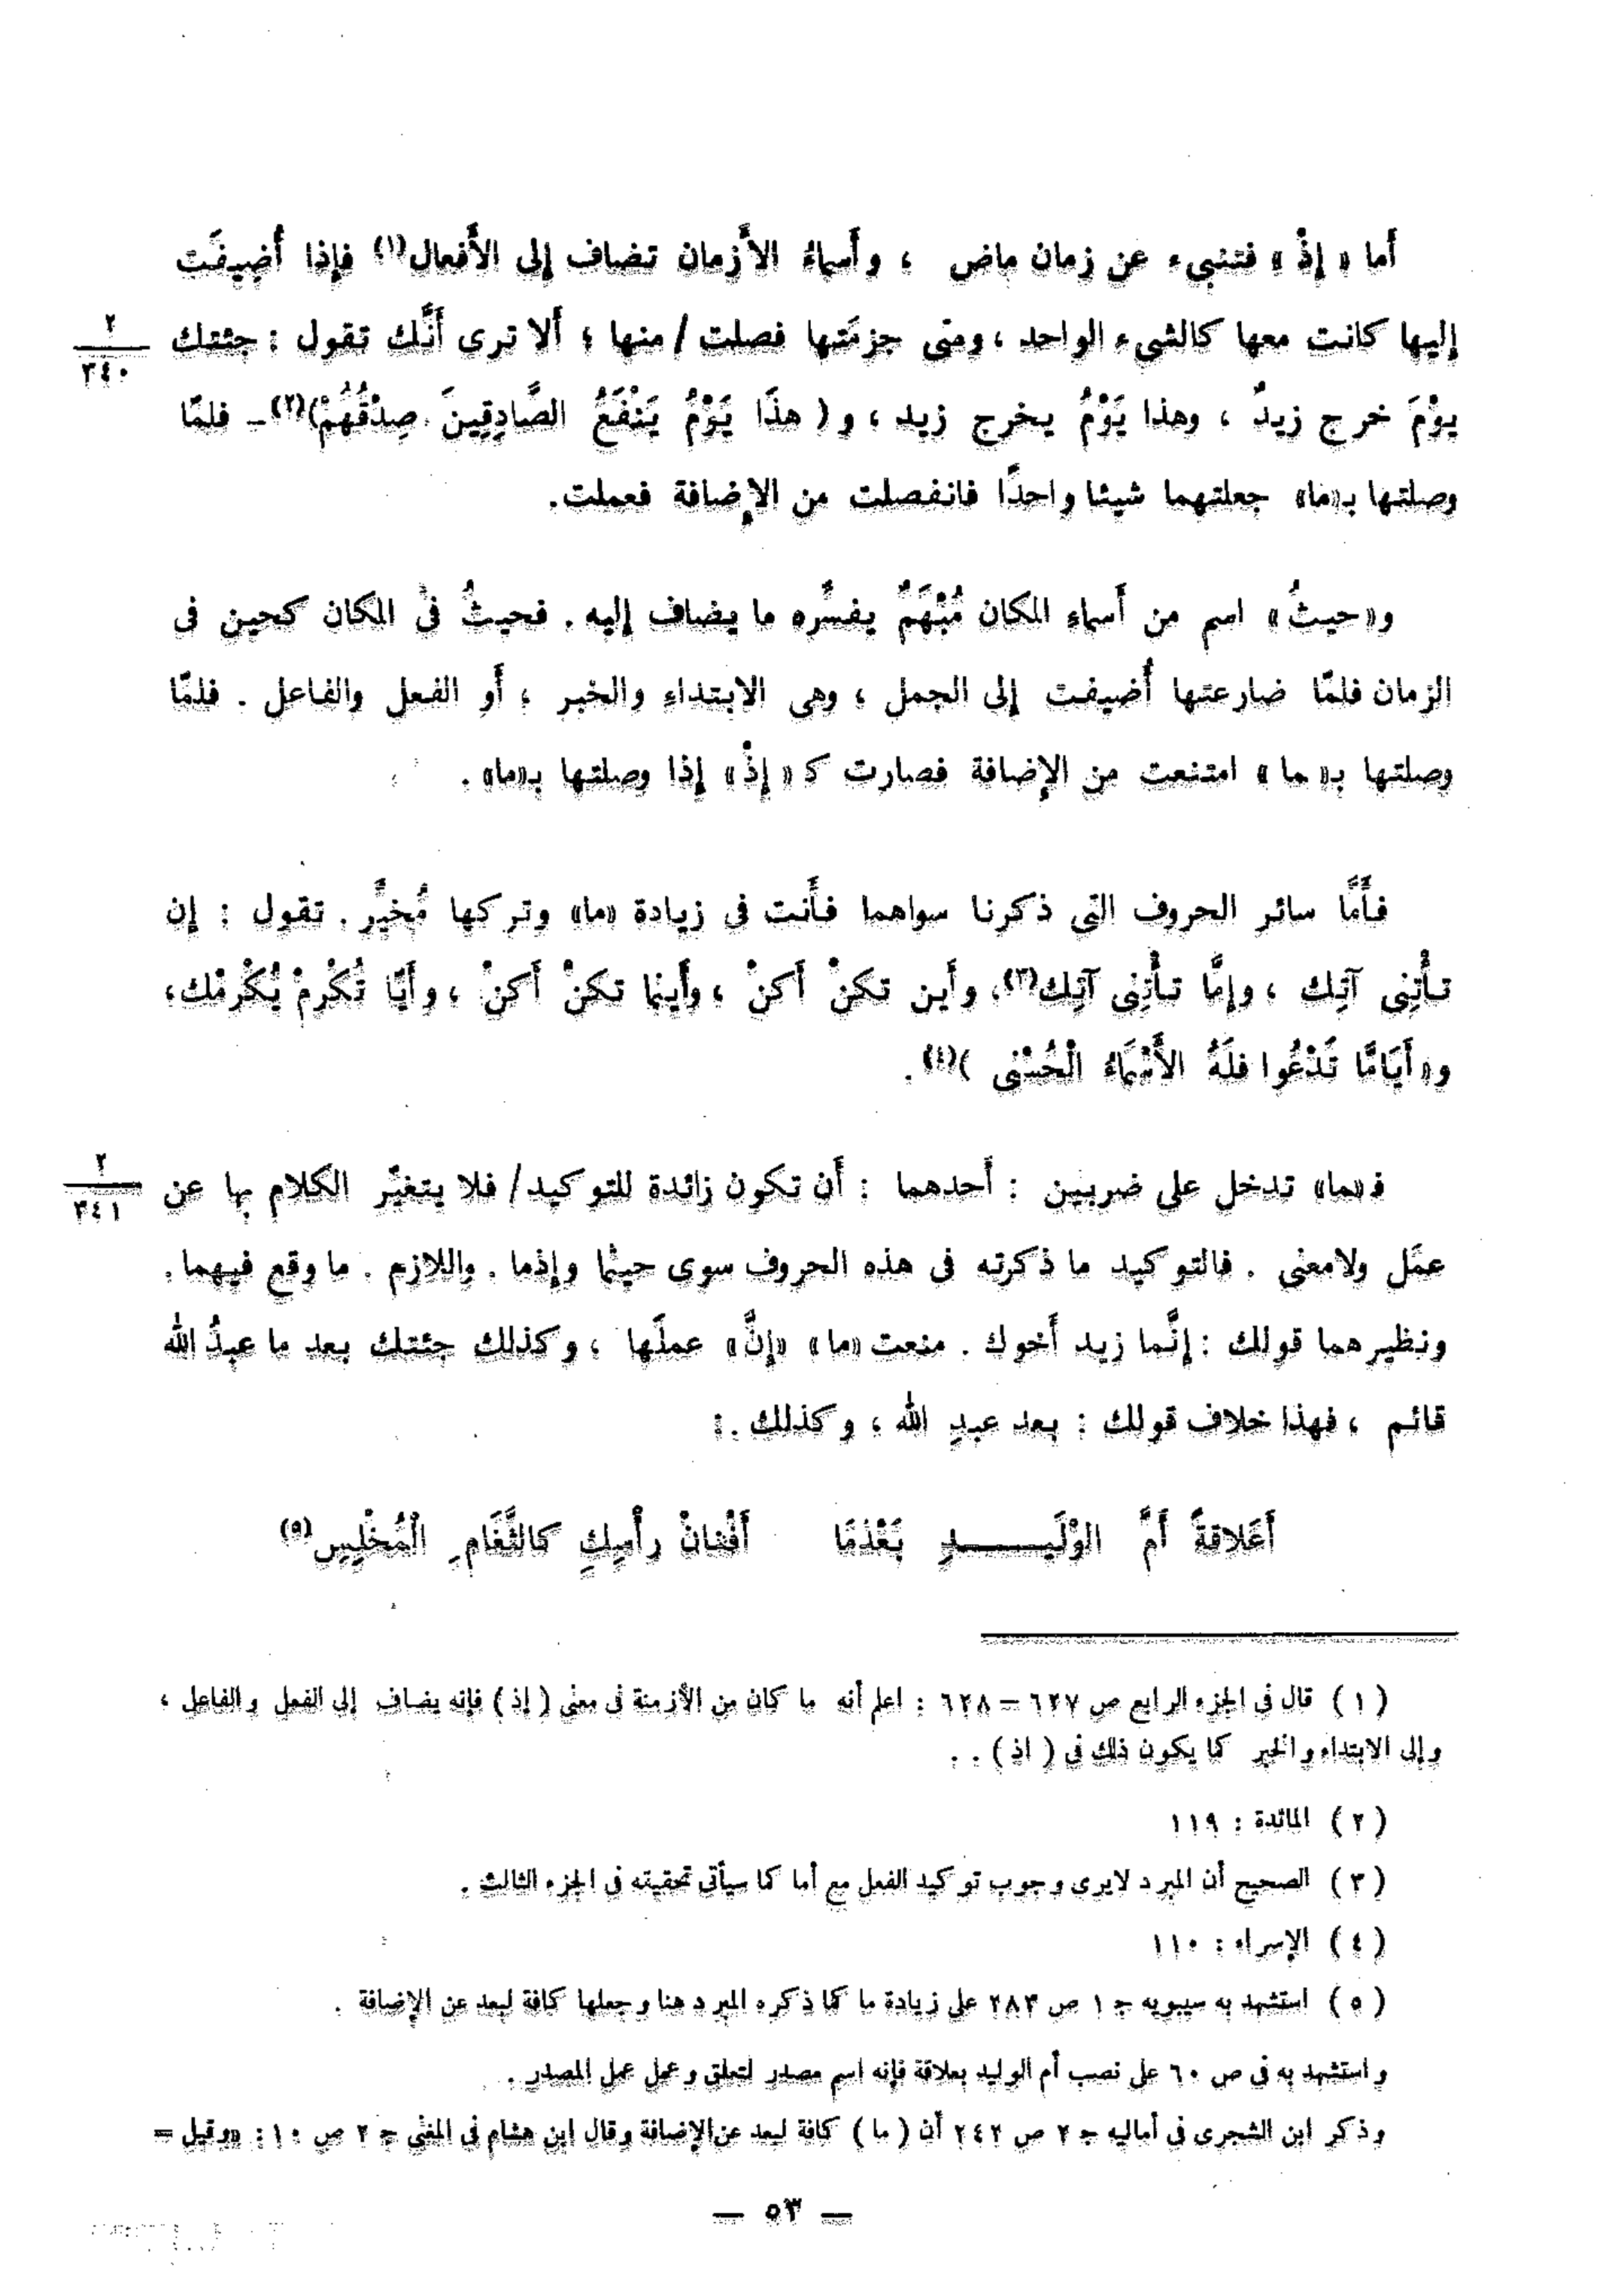 أما « إذْ » فتنبىء عن زمان ماض ، وأسماءُ الأَزمان تضاف إلى الأَفعال(١) فإذا أُضِيفَت
إليها كانت معها كالشىء الواحد ، ومتى جزمَتها فصلت / منها ؛ ألا ترى أَنَّك تقول : جئتك
٢
٣٤٠
يوْمَ خرج زيدٌ ، وهذا يَوْمُ يخرج زيد ، و ( هذَا يَوْمُ يَنْفَعُ الصَّادِقِينَ صِدْقُهُمْ)(٢) – فلمّا
وصلتها بـ«ما» جعلتهما شيئا واحدًا فانفصلت من الإِضافة فعملت.
و«حيثُ» اسم من أَسماءِ المكان مُبْهَمٌ يفسّره ما يضاف إليه . فحيثُ فى المكان كحين فى
الزمان فلمّا ضارعتها أُضيفت إلى الجمل ، وهى الابتداء والخبر ، أَو الفعل والفاعل . فلمّا
وصلتها بـ« ما » امتنعت من الإضافة فصارت كـ « إذْ » إذا وصلتها بـ«ما» .
فأَمَّا سائر الحروف التى ذكرنا سواهما فأَنت فى زيادة «ما» وتركها مُخيَّر . تقول : إن
تأْتِنى آتِك ، وإمَّا تأْتِنى آتِك(٣)، وأَين تكنْ أَكنْ ، وأَينما تكنْ أَكنْ ، وأَيّا تُكْرِمْ يُكْرِمْك،
و« أَيّامَّا تَدْعُوا فلَهُ الأَسْمَاءُ الْحُسْنى )(٤) .
فـ«ما» تدخل على ضربين : أَحدهما : أَن تكون زائدة للتوكيد/ فلا يتغيّر الكلام بها عن
٢
٣٤١
عمَل ولامعنى . فالتوكيد ما ذكرته فى هذه الحروف سوى حيثما وإذما . واللازم . ما وقع فيهما .
ونظيرهما قولك : إنَّما زيد أَخوك . منعت «ما» «إنَّ» عملَها ، وكذلك جئتك بعد ما عبدُ الله
قائم ، فهذا خلاف قولك : بعد عبدِ الله ، وكذلك :
أَعَلاقةً أُمَّ الوْلَيـــــدِ بَعْدَمَا أَفْنانُ رأْسِكِ كالثَّغَامِ الْمُخْلِسِ(٥)
( ١ ) قال فى الجزء الرابع ص ٦٢٧ – ٦٢٨ : اعلم أنه ما كان من الأزمنة فى معنى ( إذ ) فإنه يضاف إلى الفعل والفاعل ،
وإلى الابتداء والخبر كما يكون ذلك فى ( اذ ) . .
( ٢ ) المائدة : ١١٩
( ٣ ) الصحيح أن المبرد لايرى وجوب توكيد الفعل مع أما كما سيأتى تحقيقه فى الجزء الثالث .
( ٤ ) الإسراء : ١١٠
( ٥ ) استشهد به سيبويه ج ١ ص ٢٨٣ على زيادة ما كما ذكره المبرد هنا وجعلها كافة لبعد عن الإضافة .
واستشهد به فى ص ٦٠ على نصب أم الوليد بعلاقة فإنه اسم مصدر لتعلق وعمل عمل المصدر .
وذكر ابن الشجرى فى أماليه ج ٢ ص ٢٤٢ أن ( ما ) كافة لبعد عن الإضافة وقال ابن هشام فى المغنى ج ٢ ص ١٠ : «وقيل =
— ٥٣ —